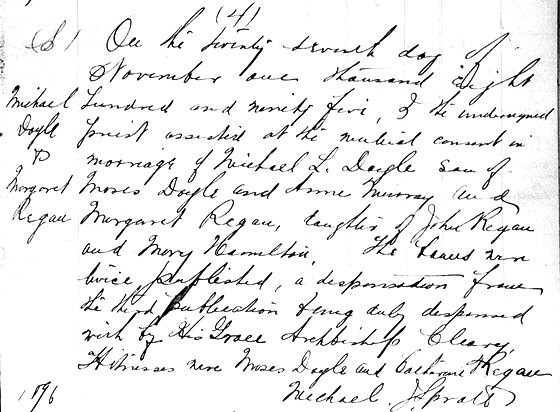 (4)
(S)
On the twenty seventh day of
November one thousand Eight
Michael Hundred and ninety five, I the undersigned
Doyle priest assisted at the mutual consent in
& marriage of Michael L. Doyle son of
Margaret Moses Doyle and Anne Murray and
Regan Margaret Regan, daughter of John Regan
and Mary Hamilton. The banns were
twice published, a dispensation from
the third publication being duly dispensed
with by His Grace Archbishop Cleary,
Witnesses were Moses Doyle and Catherine Regan
Michael J. Spratt
1896